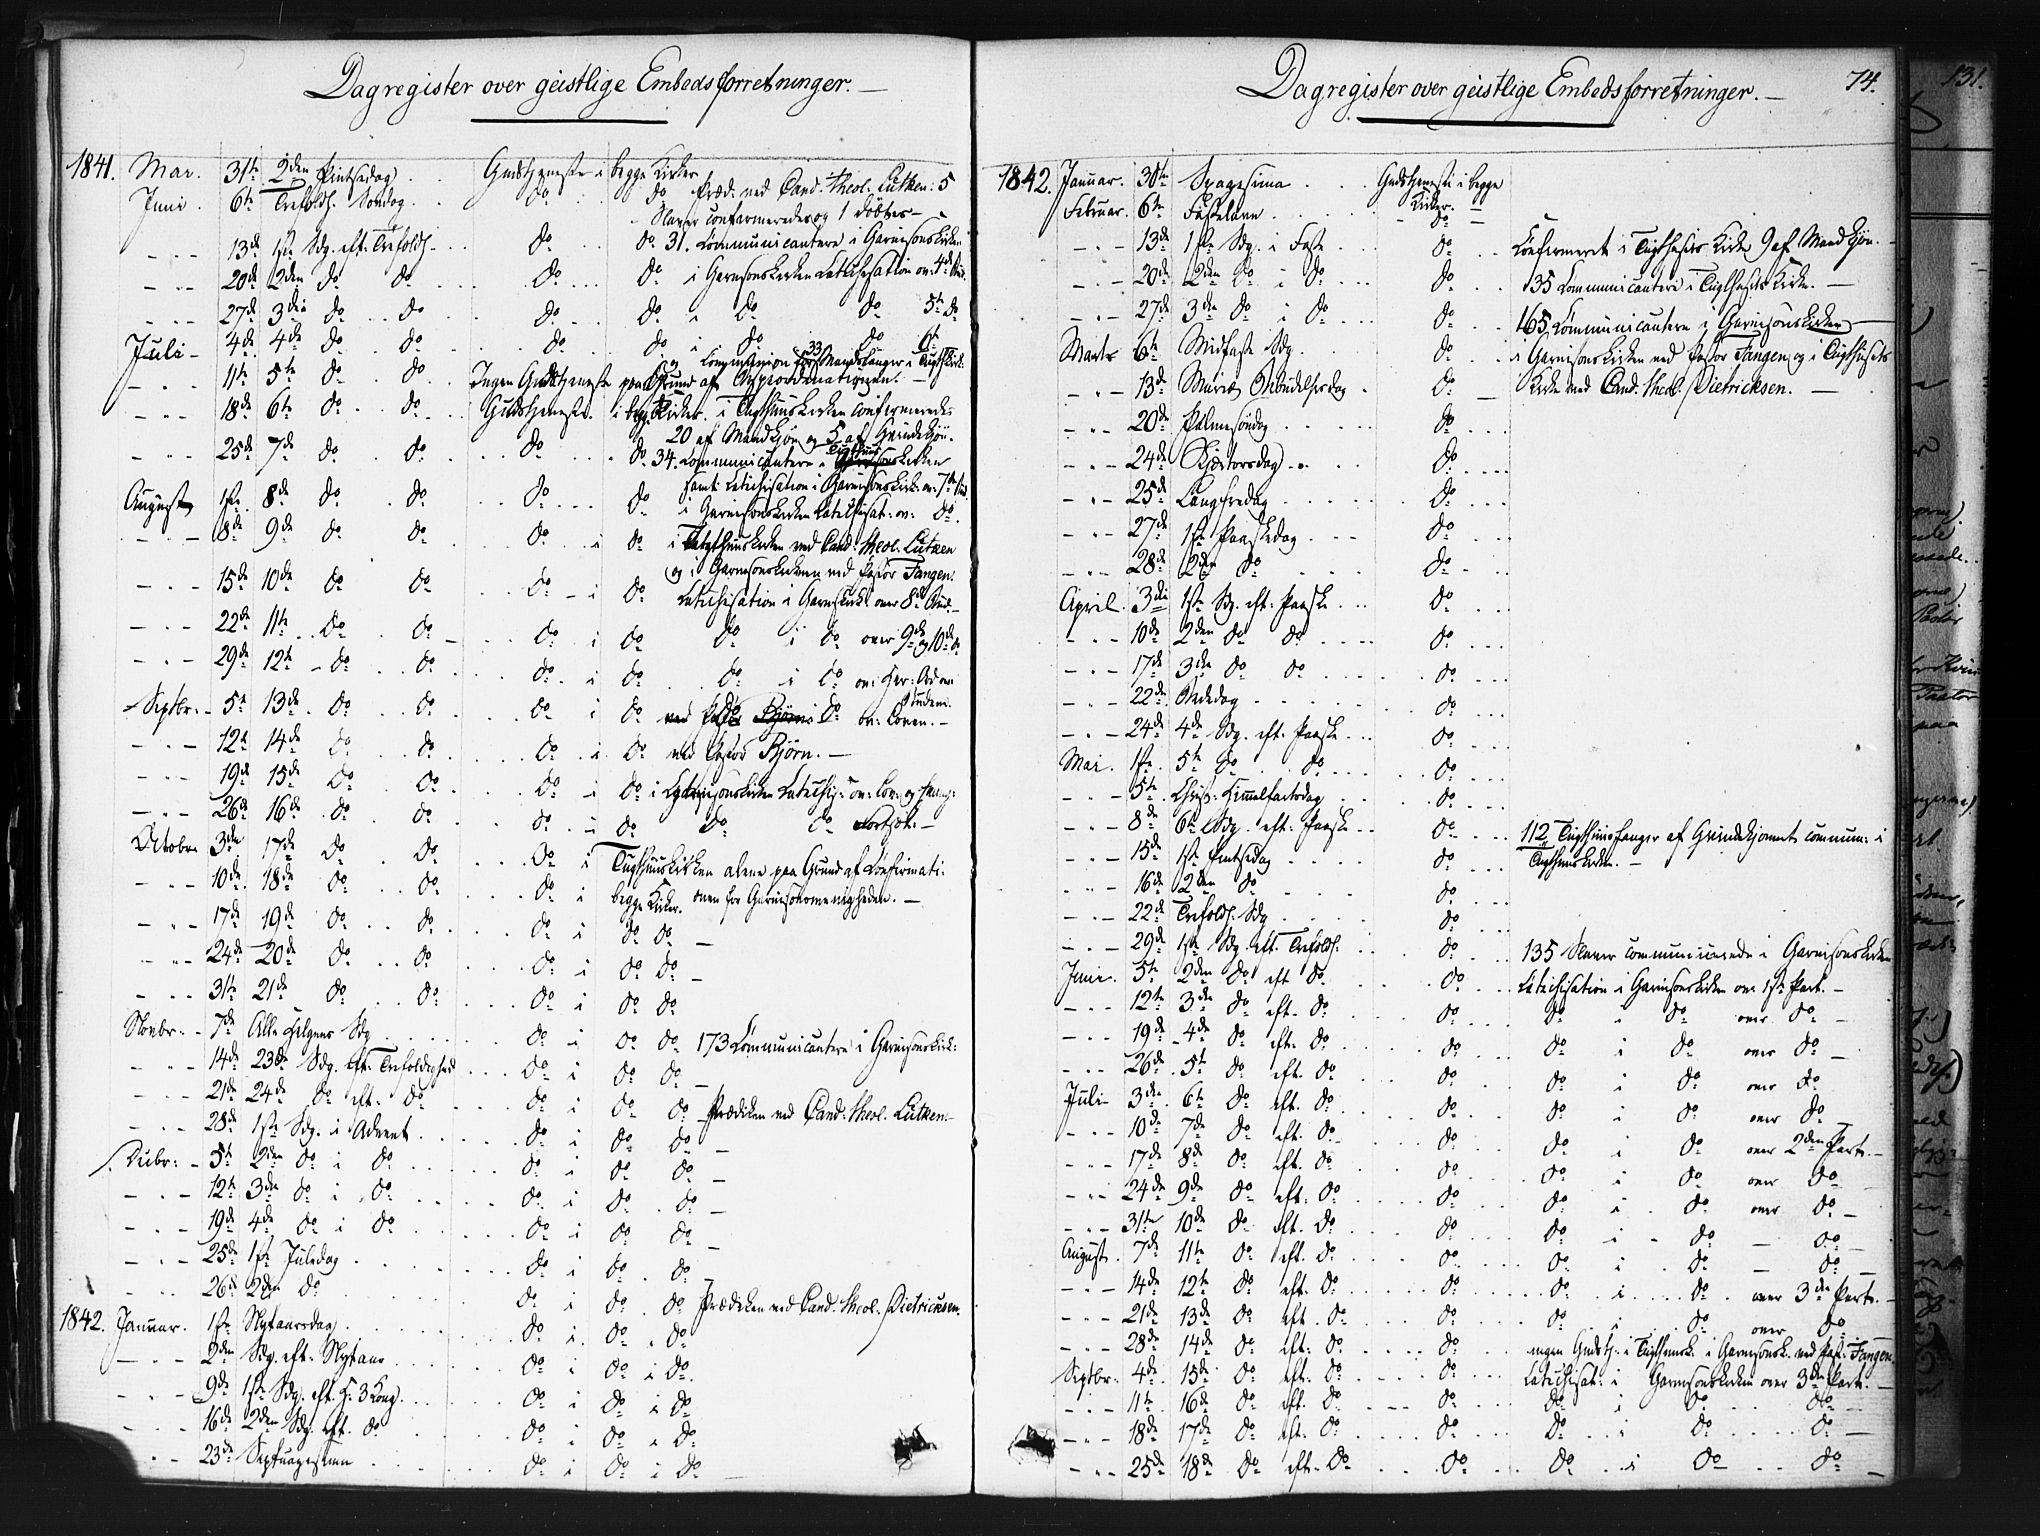 Dagregister over geistlige Embedsforretninger. —
1841. Mai. 31te 2den Pintsedag . . Gudstjeneste i begge Kirker
Juni . 6te Trefoldh. Søndag . . do . . do Præd. ved Cand. theol. Lütken: 5
Slaver confirmeredes og 1 døbtes —
— . — 13de 1ste Sdg. eft. Trefoldh. . . do . . do 31. Communicantere i Garnisonskirken
— . — 20de 2den do do . . do . . do i Garnisonskirken Catechisation ov: 4de
— . — 27de 3die do . . do . . do . . do i do do 5te do
Juli — 4de 4de do . do . . do . . do i do do 6te
og Communion for 33 Mandsfanger i Tugth.kirk.
— . — 11te 5te do . do . . Ingen Gudstjeneste paa Grund af
— . — 18de 6te do . . do . . Gudstjeneste i begge Kirker. i Tugthuuskirken confirmeredes
20 af Mandkjøn og 5 af Qvindekjøn.
— . — 25de 7de do . do . . do . . do 34. Communicantere i Tugthuuskirken
samt Catechisation i Garnisonskirk. ov: 7de
August 1ste 8de do . do . . do . . do i Garnisonskirken Catechisat: ov: do.
— . — 8de 9de do do . . do . . i do i Tugthuuskirken ved Cand. theol. Lütken
og i Garnisonskirken ved Pastor Fangen.
— . — 15de 10de do do . . do — i do Catechisation i Garnis.kirk. over 8de
— . — 22de 11te . . do . do — . . do i do do i do over 9de og 10de do
— . — 29de 12te — do . . do . . do . . i do . . do i do ov:
Septbr: — 5te 13de . do . . do . . do i do do ov: Loven. —
— . — 12te 14de do . . do . . do . . i do ved Pastor Bjørn. —
— . — 19de 15de do . do . . do — i do i Garnisonskirken Catechis: ov: Lov: og
— . — 26de 16de . do . . do . . do . . i do do do Fortsæt. —
Octobr 3die 17de do . do . . do i Tugthuuskirken alene paa Grund af Confirmati-
— . — 10de 18de do . . do . . do i begge Kirker. onen for Garnisonsmenigheden. —
— . — 17de 19de do . . do . . do i do do —
— . — 24de 20de do . . do . . do i do do —
— . — 31te 21de do . . do . . do i do do
Novbr: — 7de Alle Helgens Sdg . . do i do do 173 Communicantere i Garnisonskirk:
— . — 14de 23de Sdg. eft: Trefoldighed . . do i do do —
— . — 21de 24de do eft: do . . do i do do Prædiken ved Cand. theol. Lütken. —
— . — 28de 1ste Sdg. i Advent . . do i do do —
Decbr: — 5te 2den do i do . . do i do do —
— . — 12te 3die do i do . . do i do . do —
— . — 19de 4de do i do . . do i do do —
— . — 25de 1ste Juledag . . do i do . do
— . — 26de 2den do . . do i do . do Prædiken ved Cand. theol. Dietrichsen.
1842. Januar. 1ste Nytaarsdag . . do i do . do
— . — 2den Sdg. eft. Nytaar . . do i do i do
— . — 9de 1ste Sdg. eft H: 3 Kong. . . do i do i do
— . — 16de 2den Sdg. eft. do . . do i do i do
— . — 23de Septuagesima . . do i do i do —
Dagregister over geistlige Embedsforretninger. — 74.
1842. Januar. 30te Sexagesima . . Gudstjeneste i begge
Februar. 6te Fastelavn . . Kirker. —
do —
— . — 13de 1ste Sdg. i Faste . . do . . Confirmeret i Tugthusets Kirke 9 af Mandkjøn. —
— . — 20de 2den do i do . . do . . 135 Communicantere i Tugthusets Kirke. —
— . — 27de 3die do i do . . do . . 165 Communicantere i Garnisonskirken —
Marts 6te Midfaste Sdg . . do . . i Garnisonskirken ved Pastor Fangen og i Tugthusets
— . — 13de Mariæ Bebudelsesdag . do — Kirke ved Cand. theol. Dietrichsen. —
— . — 20de Palmesøndag . . do . .
— . — 24de Skjærtorsdag . . do . .
— . — 25de Langfredag . . do . .
— . — 27de 1ste Paaskedag . . do . .
— . — 28de 2den do . . do . .
April . 3die 1ste Sdg. eft: Paaske . . do . .
— . — 10de 2den do do . . do . .
— . — 17de 3die do do . . do . .
— . — 22de Bededag . . do . .
— . — 24de 4de Sdg. eft. Paaske . . do . .
Mai . 1ste 5te do . do . . do . .
— . — 5te Christ: Himmelfartsdag . . do . .
— . — 8de 6te Sdg. eft: Paaske . . do . . 112 Tugthuusfanger af Qvindekjønnet commun: i
— . — 15de 1ste Pintsedag . . do . . Tugthuuskirken. —
— . — 16de 2den do . . do
— . — 22de Trefoldh. Sdg . . do . .
— . — 29de 1ste Sdg. eft. Trefoldh. . . do . . 135 Slaver communicerede i Garnisonskirken
Juni . 5te 2den do eft do . . do . . Catechisation i Garnisonskirken over 1ste Part. —
— . — 12te 3die do eft. do . . do . . do i do over do —
— . — 19de 4de do eft. do . . do . . do i do over do —
— . — 26de 5te do eft. do . . do . . do i do over do
Juli — 3die 6te do eft. do . . do . . do i do over do
— . — 10de 7de do eft. do . . do . . do i do over 2den Part. —
— . — 17de 8de do eft. do . . do . . do i do over do —
— . — 24de 9de do eft: do . . do . . do i . do over do —
— . — 31te 10de do eft. do . . do . . do i — do — do —
August . 7de 11te do eft. do . . do . . do i . do — do —
— . — 14de 12te do eft: do . . do . . do . i . do . over 3die Part. —
— . — 21de 13de do eft. do . . do . . do . i . do over do
— . — 28de 14de do eft: do . . do . . ingen Gudstj: i Tugthuusk. i Garnisonsk. ved Past: Fangen.
Septbr: 4de 15de do eft: do . . do . . Catechisat: i Garnisonskirken over 3die Part. —
— . — 11te 16de do eft. do . . do . . do i do . . do —
— . — 18de 17de do eft. do . . do . . do . . i do . . do —
— . — 25de 18de do eft: do . . do . . do . . i do — . . do —
131.